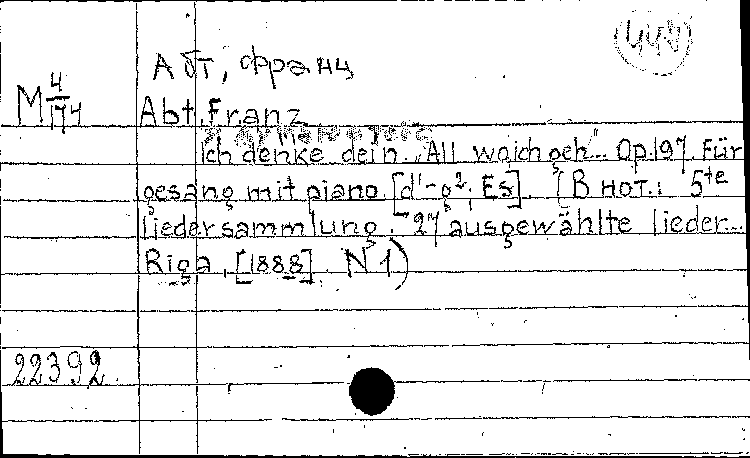 Абт, Франц
M 4/174
Abt, Franz
Ich denke dein. „All wo ich geh"... Op.197. Für
gesang mit piano. [d'-g², Es]. (В нот.: 5te
liedersammlung. 27 ausgewählte lieder...
Riga, [1888]. N 1)
22392.